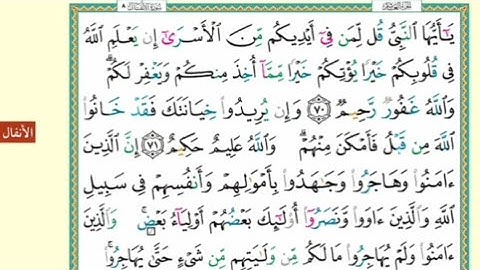 يَٰٓأَيُّهَا ٱلنَّبِيُّ قُل لِّمَن فِيٓ أَيۡدِيكُم مِّنَ ٱلۡأَسۡرَىٰٓ إِن يَعۡلَمِ ٱللَّهُ
فِي قُلُوبِكُمۡ خَيۡرٗا يُؤۡتِكُمۡ خَيۡرٗا مِّمَّآ أُخِذَ مِنكُمۡ وَيَغۡفِرۡ لَكُمۡۚ
وَٱللَّهُ غَفُورٞ رَّحِيمٞ ٧٠ وَإِن يُرِيدُواْ خِيَانَتَكَ فَقَدۡ خَانُواْ
ٱللَّهَ مِن قَبۡلُ فَأَمۡكَنَ مِنۡهُمۡۗ وَٱللَّهُ عَلِيمٌ حَكِيمٌ ٧١ إِنَّ ٱلَّذِينَ
الأنفال
ءَامَنُواْ وَهَاجَرُواْ وَجَٰهَدُواْ بِأَمۡوَٰلِهِمۡ وَأَنفُسِهِمۡ فِي سَبِيلِ
ٱللَّهِ وَٱلَّذِينَ ءَاوَواْ وَّنَصَرُوٓاْ أُوْلَٰٓئِكَ بَعۡضُهُمۡ أَوۡلِيَآءُ بَعۡضٖۚ وَٱلَّذِينَ
ءَامَنُواْ وَلَمۡ يُهَاجِرُواْ مَا لَكُم مِّن وَلَٰيَتِهِم مِّن شَيۡءٍ حَتَّىٰ يُهَاجِرُواْۚ